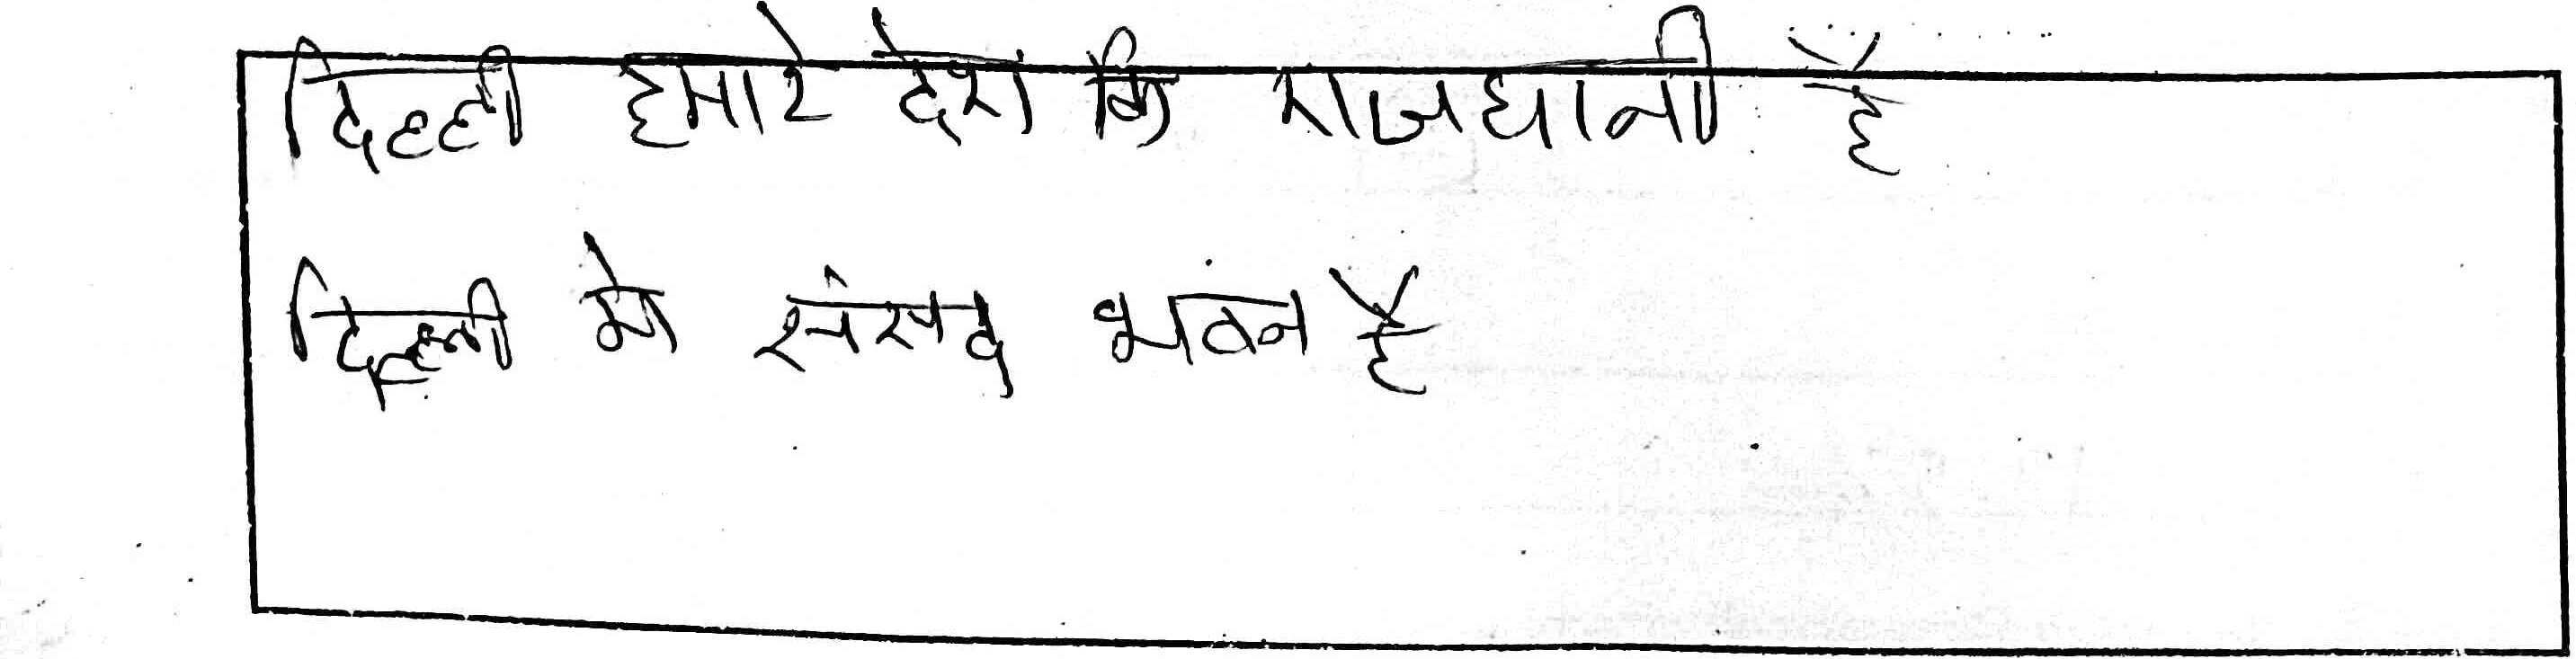 दिल्ली हमारे देश कि राजधानी है
दिल्ली मे संसद भवन है